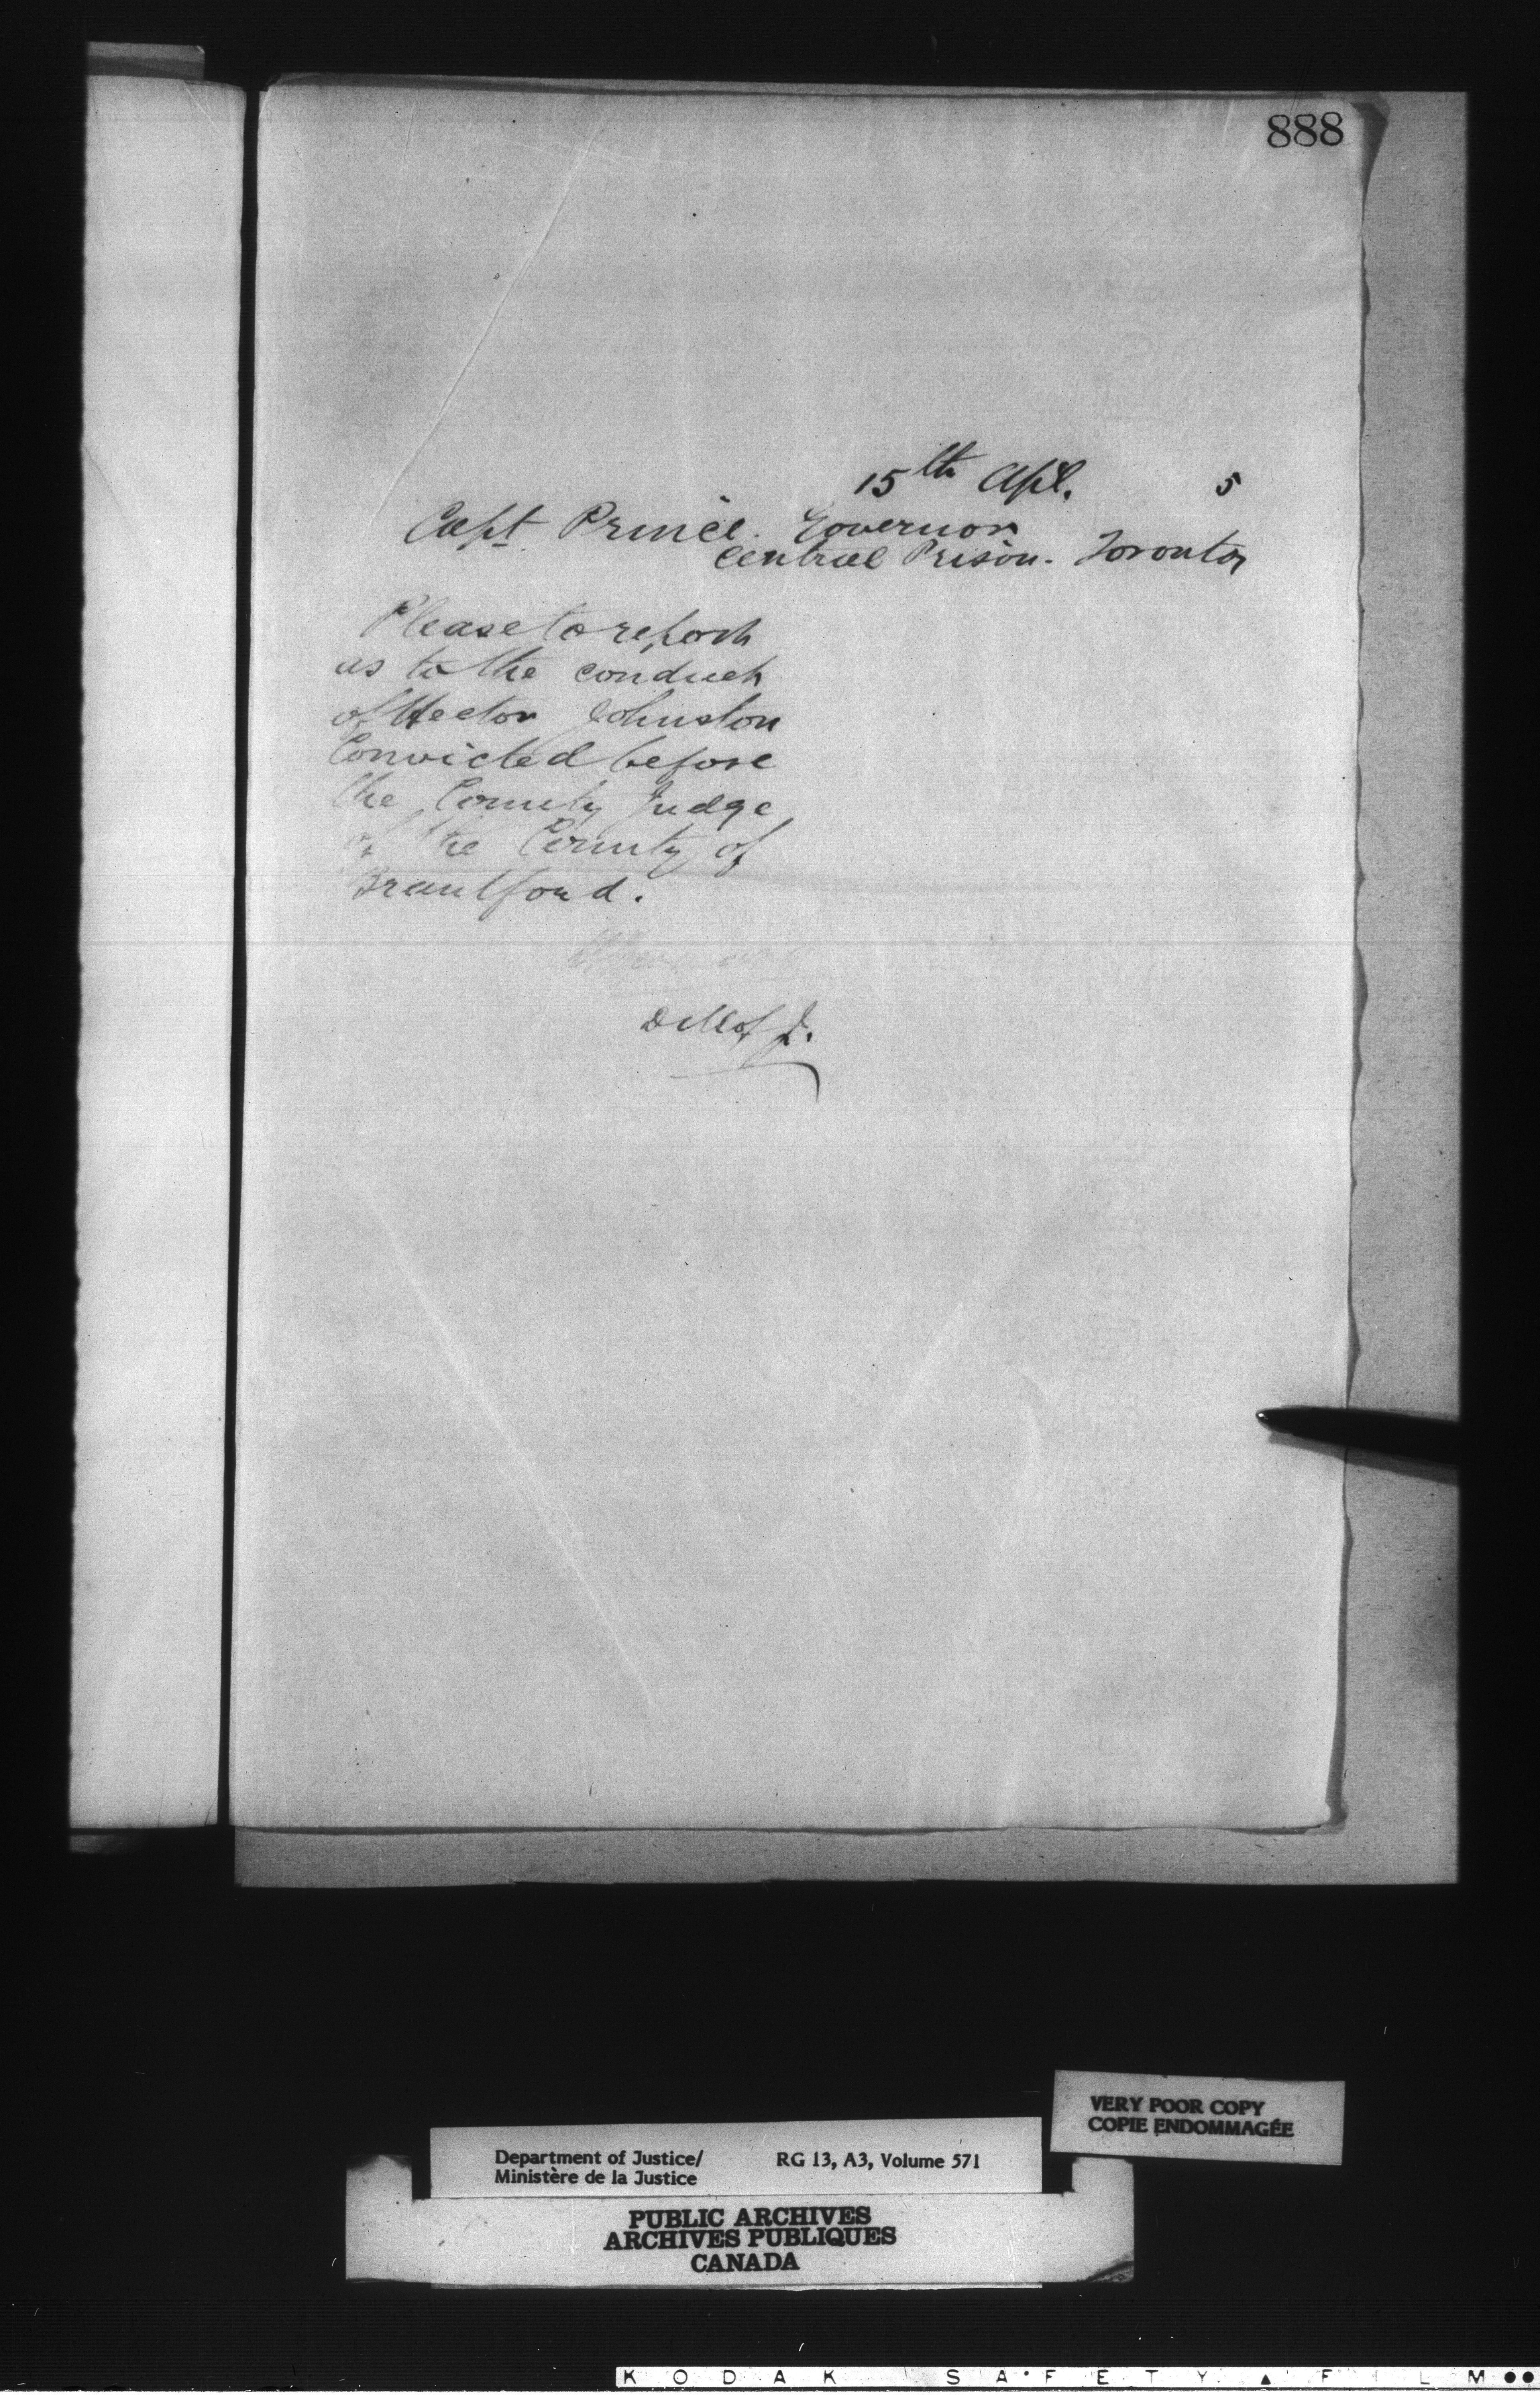 888
15th Apl. 5
Capt Prince. Governor
Central Prison. Toronto
Please to report
as to the conduct
of Hector Johnston
Convicted before
the County Judge
of the County of
Brantford.
D M of J.
VERY POOR COPY
COPIE ENDOMMAGÉE
Department of Justice/ RG 13, A3, Volume 571
Ministère de la Justice
PUBLIC ARCHIVES
ARCHIVES PUBLIQUES
CANADA
KODAK SAFETY FILM